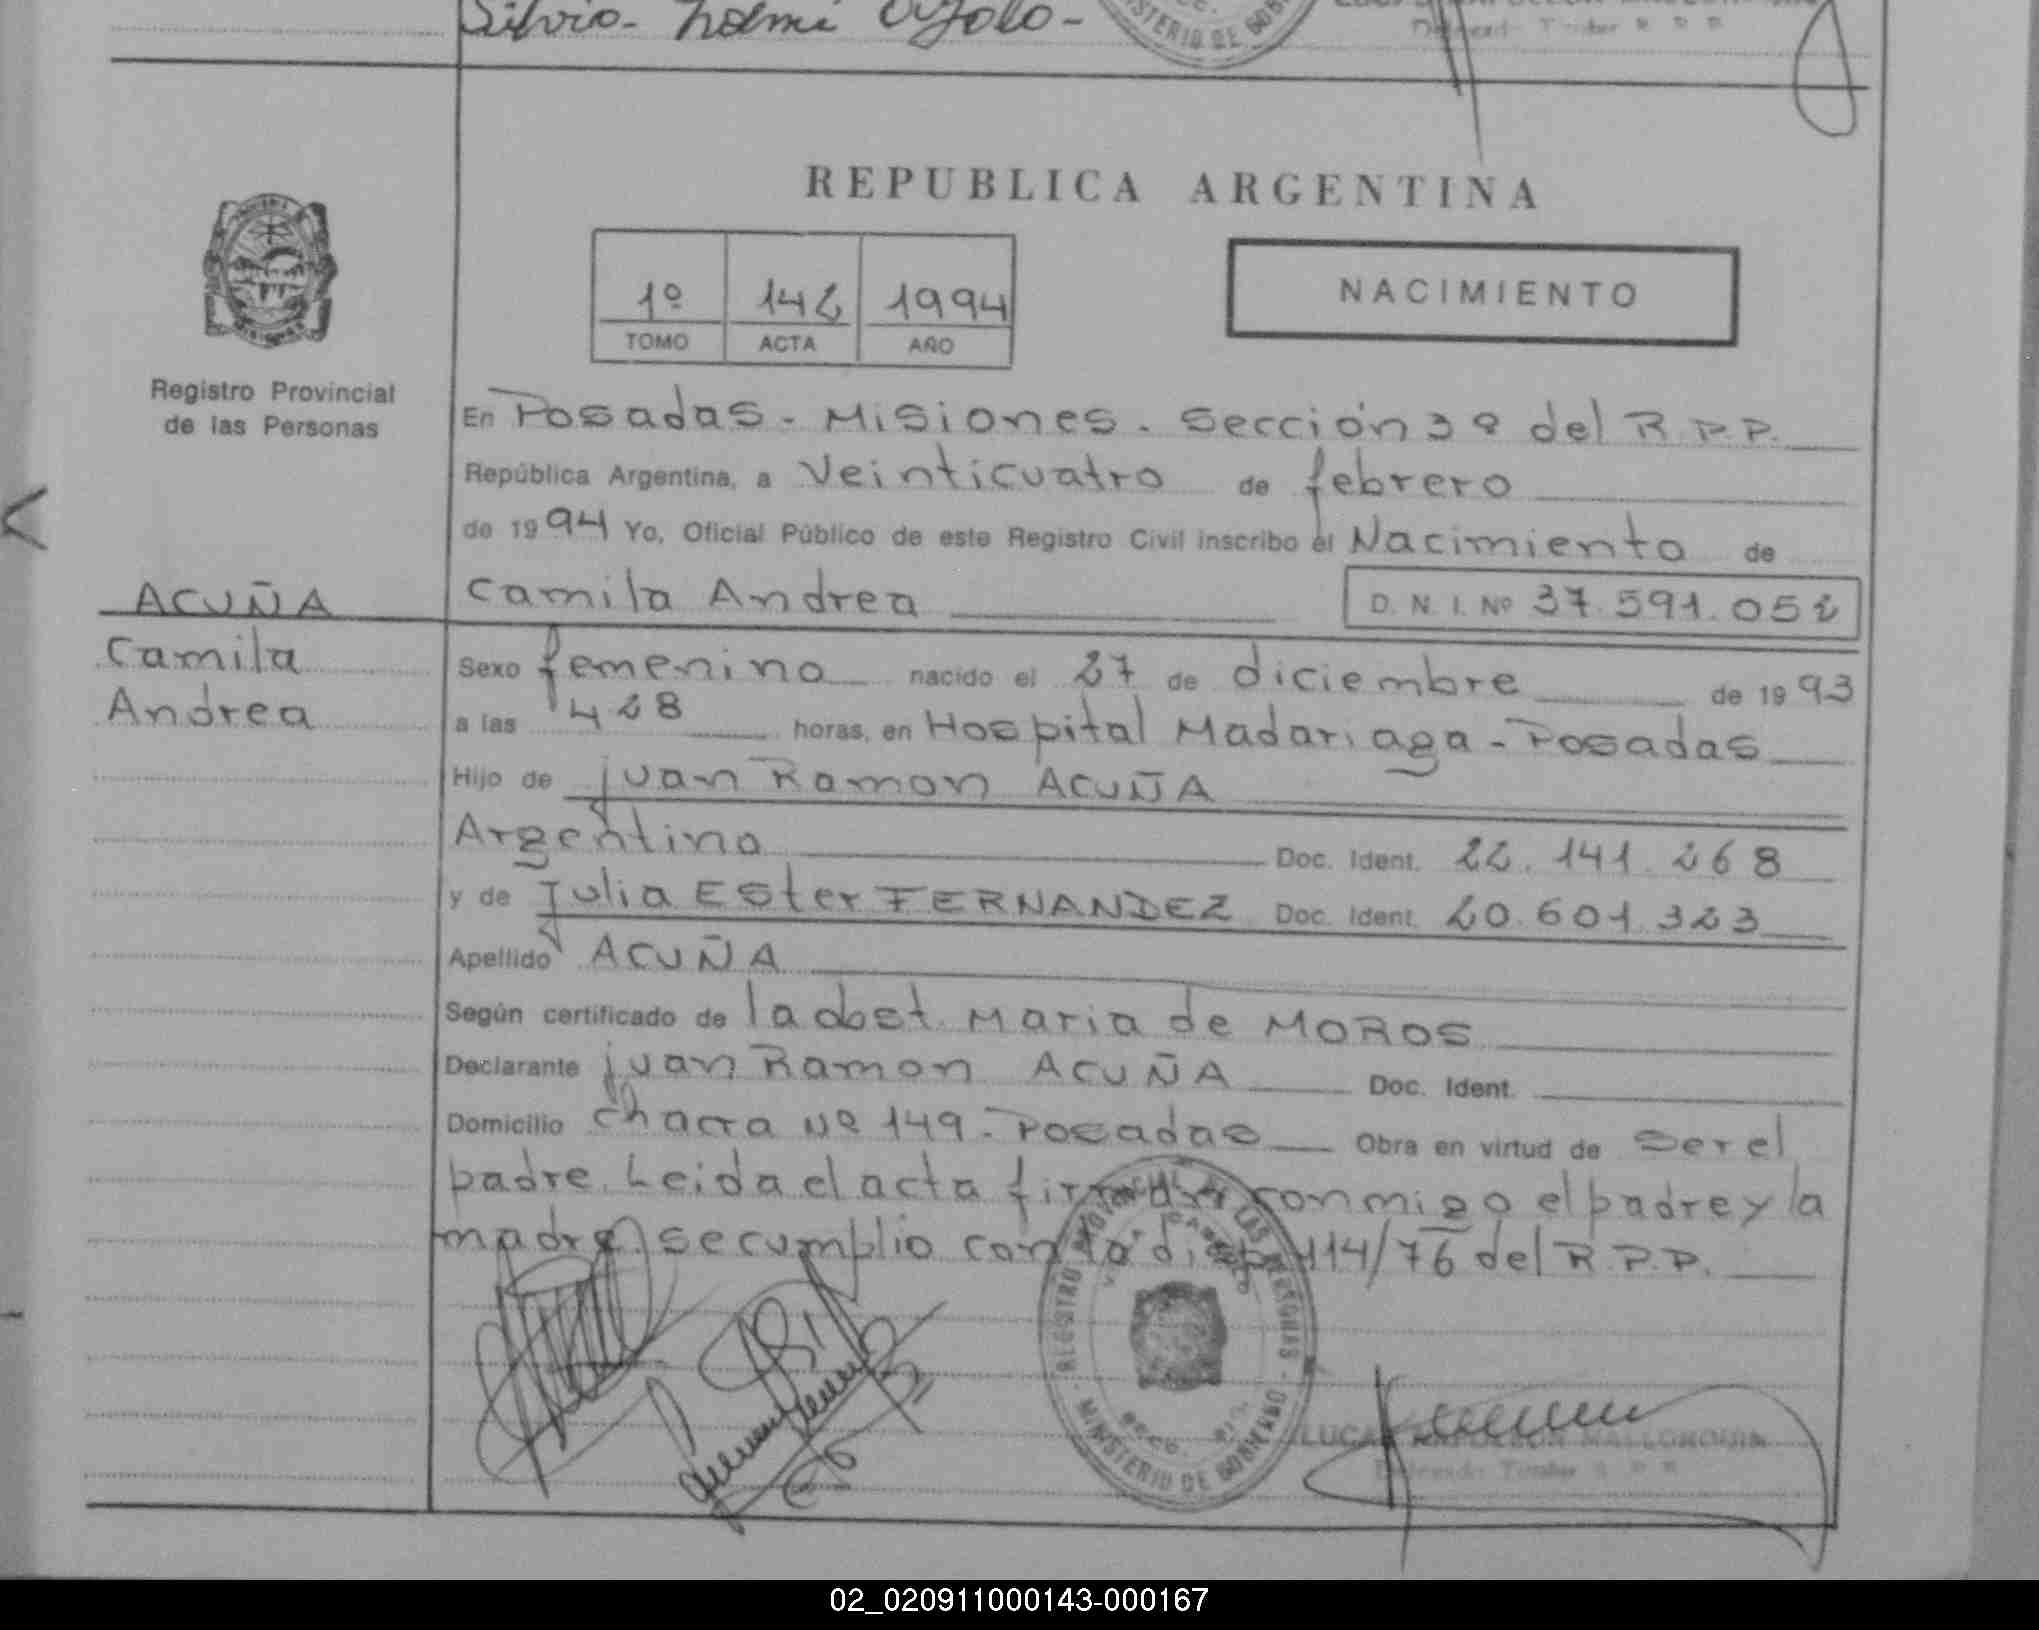 Silvia Noemi Ayala-
MINISTERIO DE GOB
REPUBLICA ARGENTINA
1º 142 1994
TOMO ACTA AÑO
NACIMIENTO
Registro Provincial
de las Personas
En Posadas - Misiones. Sección 3º del R.P.P.
República Argentina, a Veinticuatro de febrero
de 1994 Yo, Oficial Público de este Registro Civil inscribo el Nacimiento de
Camila Andrea D. N. I. Nº 37.591.052
ACUÑA
Camila
Andrea
Sexo femenino nacido el 27 de diciembre de 1993
a las 4 28 horas, en Hospital Madariaga - Posadas
Hijo de Juan Ramon ACUÑA
Argentina Doc. Ident. 22.141.268
y de Julia Ester FERNANDEZ Doc. Ident. 20.601.323
Apellido ACUÑA
Según certificado de la obst. Maria de MOROS
Declarante Juan Ramon ACUÑA Doc. Ident.
Domicilio Chacra Nº 149 - Posadas Obra en virtud de ser el
padre. Leida el acta firman conmigo el padre y la
madre. se cumplio con la disp. 114/76 del R.P.P.
REGISTRO PROVINCIAL DE LAS PERSONAS - MINISTERIO DE GOBIERNO
LUCAS NAPOLEON MALLORQUIN
Delegado Titular R P P
02_020911000143-000167